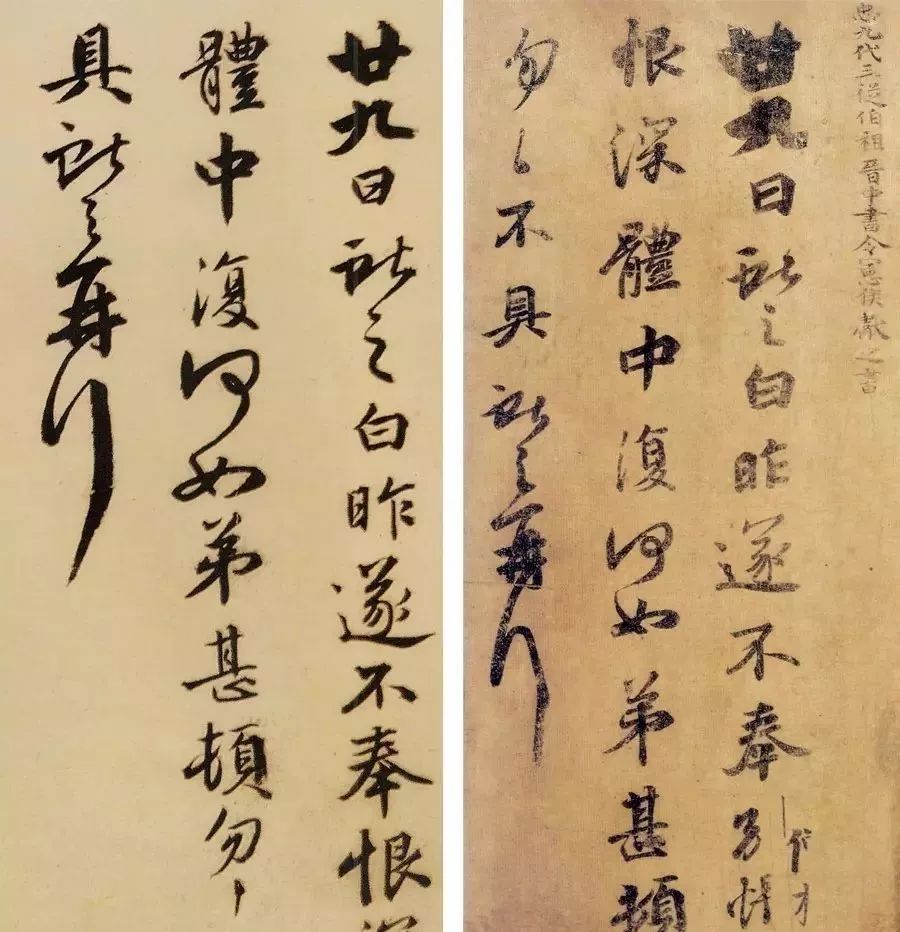 廿九日獻之白昨遂不奉恨
體中復何如弟甚頓勿〻
具獻之再拜
臣九代三從伯祖晉中書令憲侯獻之書
廿九日獻之白昨遂不奉別悵
恨深體中復何如弟甚頓
勿〻不具獻之再拜